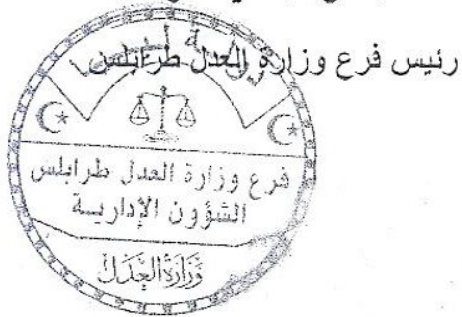 رئيس فرع وزارة العدل طرابلس
دولة ليبيا
فرع وزارة العدل طرابلس
الشؤون الإدارية
وزارة العدل